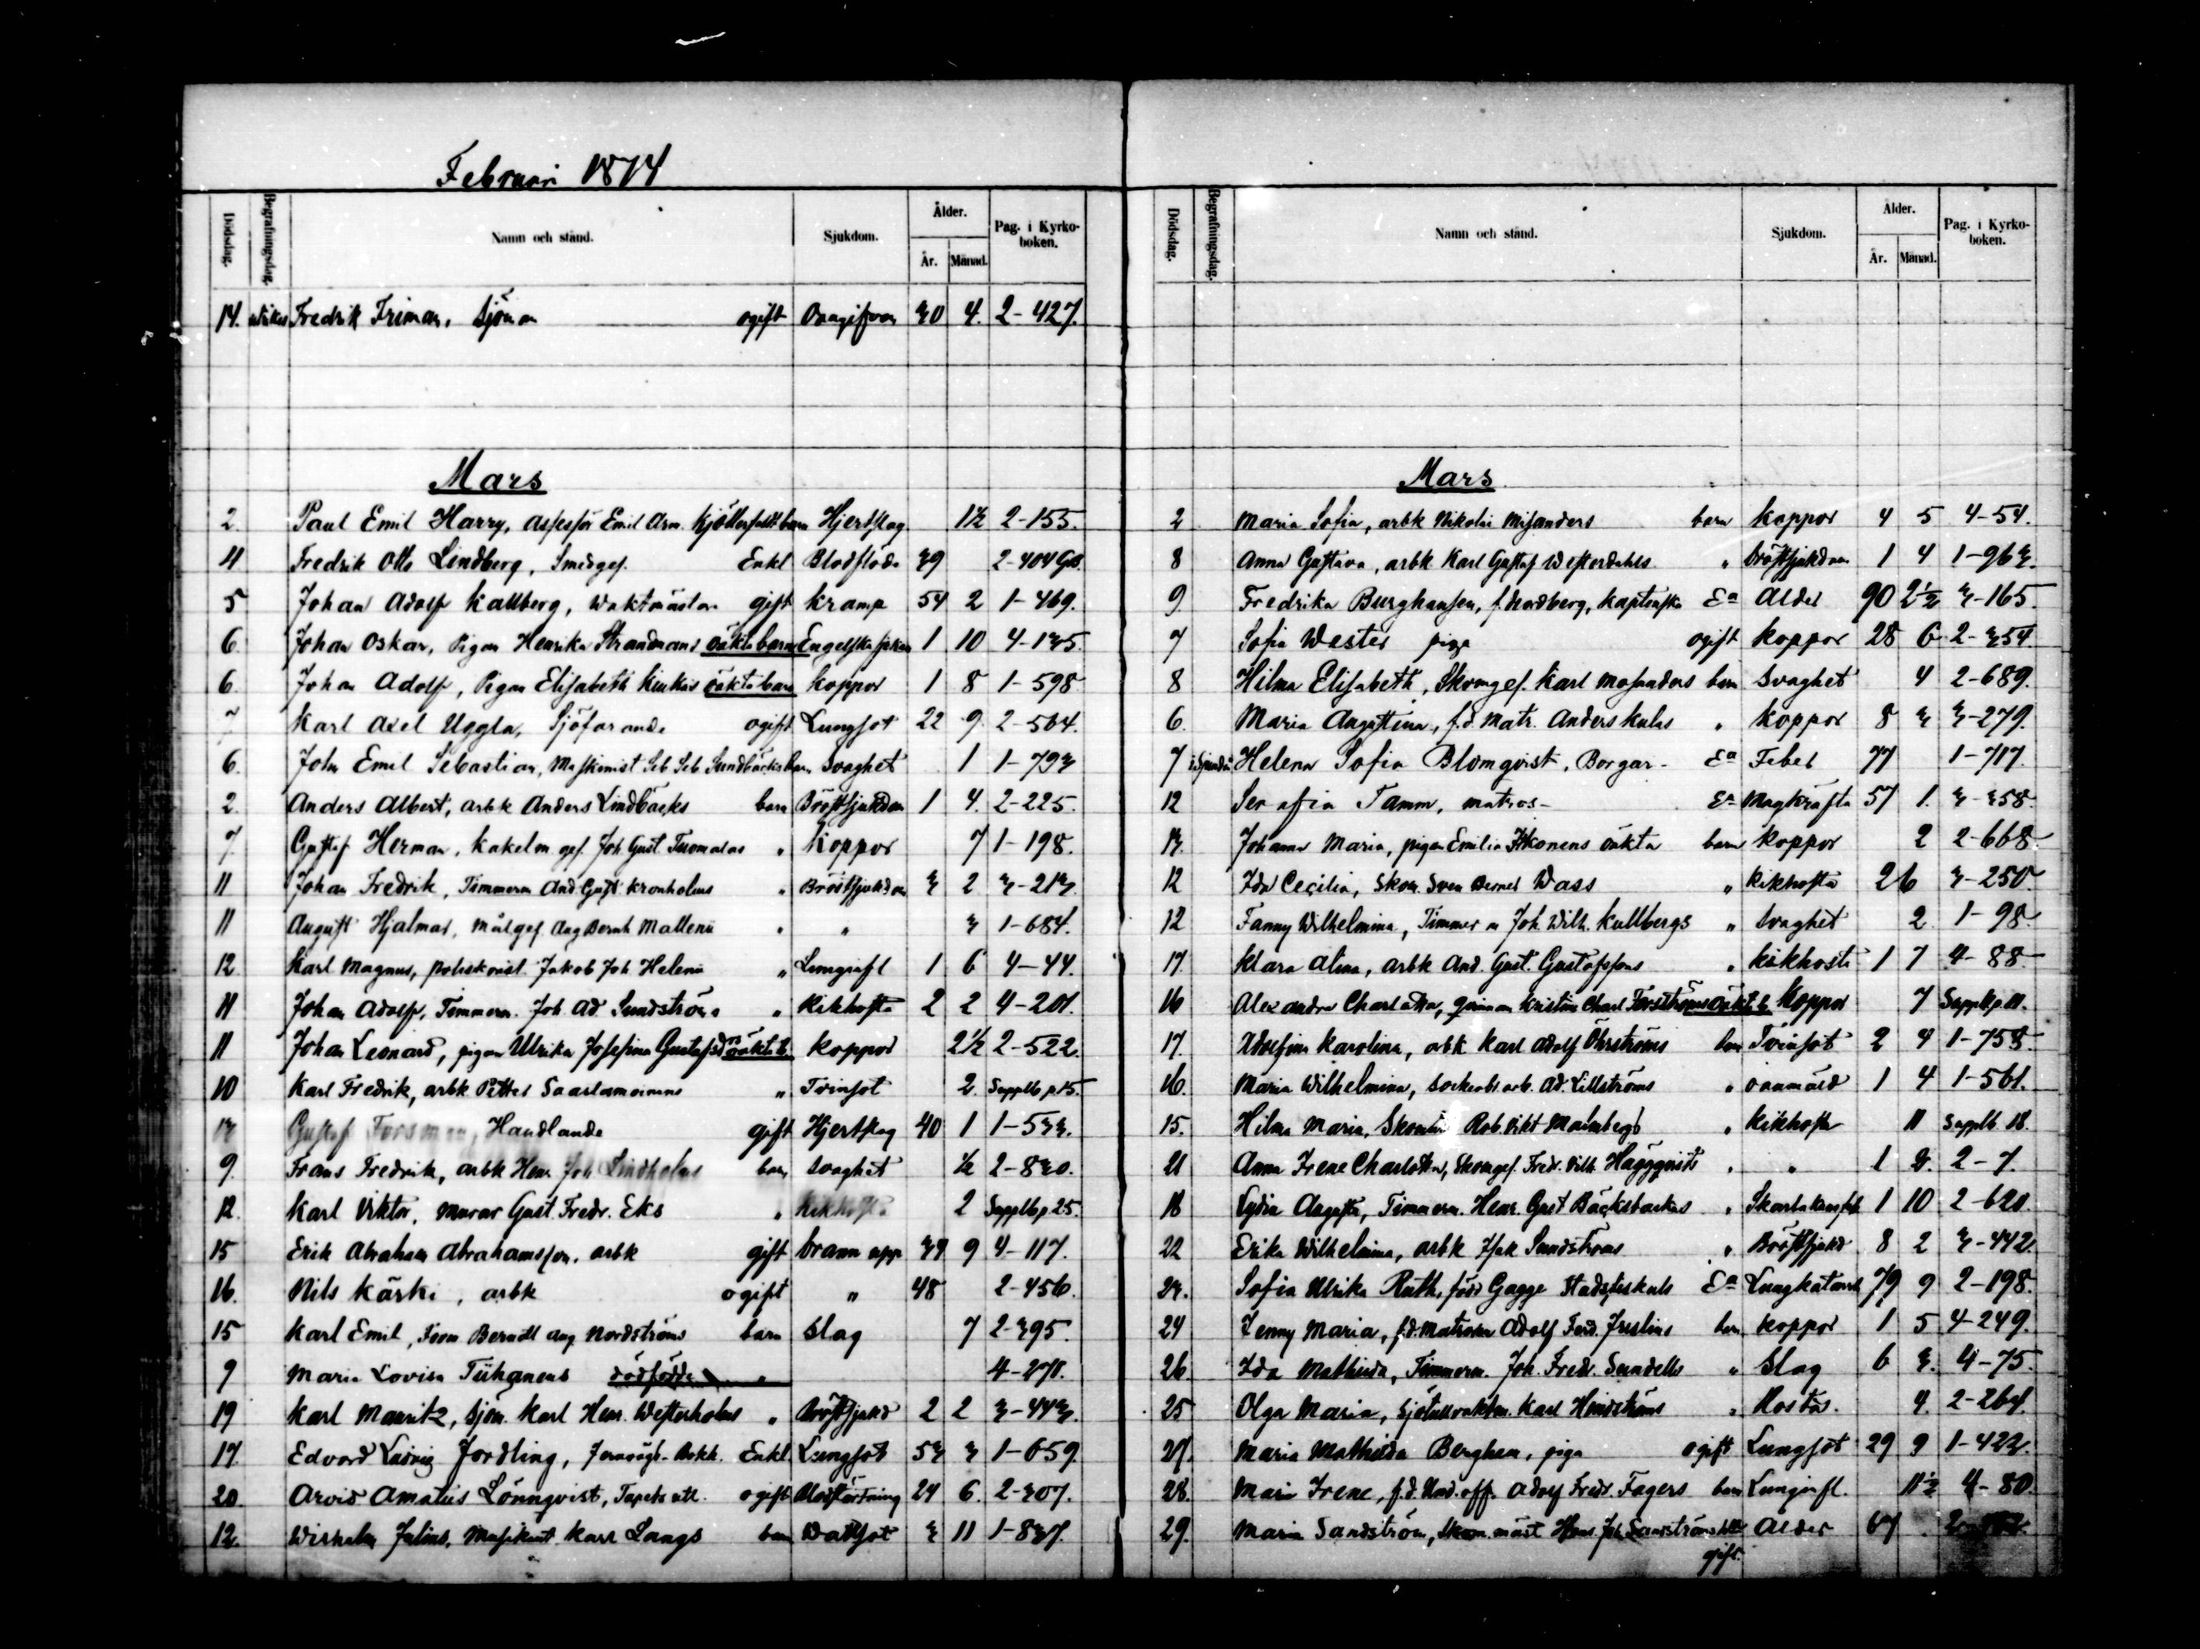 Februari 1874
Dödsdag. Begrafningsdag. Namn och stånd. Sjukdom. Ålder. År. Månad. Pag. i Kyrkoboken.
14. Fredrik Friman, Sjöman ogift 30 4. 2-427.
Mars
2. Paul Emil Harry, assessor Emil Arn. barn Hjertslag 1½ 2-155.
4 Fredrik Otto Lindberg, Smidgef. Enkl Blodflöde 39 2-404
5 Johan Adolf Kallberg, Waktmästare gift kramp 54 2 1-469.
6. Johan Oskar, Pigan Henrika Strandmans oäkta barn Engelska sjukan 1 10 4-135.
6. Johan Adolf, Pigan Elisabeth oäkta barn koppor 1 8 1-598
7 Karl Axel Uggla, Sjöfarande ogift Lungsot 22 9. 2-564.
6. John Emil Sebastian, Maskinist Seb Sundbäcks barn Svaghet 1 1-793
2. Anders Albert, arbk Anders Lindbäcks barn Bröstsjukdom 1 4. 2-225.
7. Gustaf Herman, kakelm gef. Joh Gust. Tuomalas " Koppor 7 1-198.
11 Johan Fredrik, Timmerm And Gust. Kronholms " Bröstsjukdom 3 2 3-213.
11 August Hjalmar, Målgef. Aug Bernh Mallenii " " 3 1-684.
12. Karl Magnus, poliskonst. Jakob Joh Helenii " Lunginfl 1 6 4-44.
11 Johan Adolf, Timmerm. Joh. Ad. Sundströms " Kikhosta 2 2 4-201.
11 Johan Leonard, pigan Ulrika Josefina Gustafsd:s oäkta b. koppor 2½ 2-522.
10 Karl Fredrik, arbk Petter Saarlamoinens " Tvinsot 2. Supplb p 15.
13 Gustaf Forsman, Handlande gift Hjertslag 40 1 1-533.
9. Frans Fredrik, arbk Henr. Joh Lindholms barn svaghet ½ 2-830.
12. Karl Viktor, Murar Gust. Fredr. Eks " Kikhosta 2 Supplb p 25.
15 Erik Abraham Abrahamsson, arbk gift 39 9 4-117.
16. Nils Kärki, arbk ogift " 48 2-456.
15 Karl Emil, Berndt Aug Nordströms barn slag 7 2-395.
9 Maria Lovisa Tiihanens dödfödda " 4-271.
19 Karl Mauritz, Sjöm. Karl Henr. Westerholms " Bröstsjukd 2 2 3-443.
17. Edvard Ludvig Jordling, Enkl. Lungsot 53 3 1-659.
20. Arvid Amatus Lönnqvist, ogift Blodstörtning 24 6. 2-307.
12. Wilhelm Julius, Musikant Karl Laags barn Wattsot 3 11 1-837.
Dödsdag. Begrafningsdag. Namn och stånd. Sjukdom. Ålder. År. Månad. Pag. i Kyrkoboken.
Mars
2 Maria Sofia, arbk Nikolai Misanders barn koppor 4 5 4-54.
8 Anna Gustava, arbk Karl Gustaf Westerdahls " Bröstsjukdom 1 4 1-963.
9. Fredrika Burghausen, f. Lundberg, Kaptenska E:a Ålder 90 2½ 3-165.
7 Sofia Wester piga ogift koppor 28 6 2-354.
8 Hilma Elisabeth, Skomgef. Karl Mosanders barn Svaghet 4 2-689.
6. Maria Augustina, f.d. Matr. Anders Kulas " koppor 8 3 3-279.
7 Helena Sofia Blomqvist, Borgar- E:a Feber 77 1-717.
12 Serafia Tamm, matros- E:a Magkräfta 57 1. 3-358.
13. Johanna Maria, pigan Emilia Ikonens oäkta barn koppor 2 2-668.
12 Ida Cecilia, Skom. Sven Bernd Wass " Kikhosta 2 6 3-250.
12 Fanny Wilhelmina, Timmerm Joh. Wilh. Kullbergs " Svaghet 2. 1-98.
17. Klara Alina, arbk And. Gust. Gustafssons " kikhosta 1 7 4-88.
16 Alexandra Charlotta, Kristina Charl Forsströms oäkta b. koppor 7 Supplb p 11.
17. Adolfina Karolina, arbk Karl Adolf Öhrströms barn Tvinsot 2 4 1-758
16. Maria Wilhelmina, Ad. Lillströms " oanmäld 1 4 1-561.
15. Hilma Maria, Rob. Vikt Malmbergs " Kikhosta 11 Supplb 18.
21 Anna Irene Charlotta, Skomgef. Fredr. Vilh. Häggqvists " " 1 2-7.
18 Lydia Augusta, Timmerm. Henr. Gust Bäcksbackas " 1 10 2-620.
22 Erika Wilhelmina, arbk Isak Sundströms " Bröstsjukd 8 2 3-442.
23. Sofia Ulrika Ruth, född Gagge E:a Lungkatarrh 79 9 2-198.
24 Jenny Maria, f.d. Matrosen Adolf Ferd. Juslins barn koppor 1 5 4-249.
26. Ida Mathilda, Timmerm. Joh. Fredr. Sundells " Slag 6 3. 4-75.
25 Olga Maria, Sjötullvaktm. Karl Hindströms " Hosta. 4. 2-264.
27. Maria Mathilda Berghem, piga ogift Lungsot 29 9 1-422.
28. Maria Irene, f.d. Und.off. Adolf Fredr. Fagers barn Lunginfl. 11½ 4-80.
29. Maria Sandström, Joh Sandströms Ålder 67
gift.